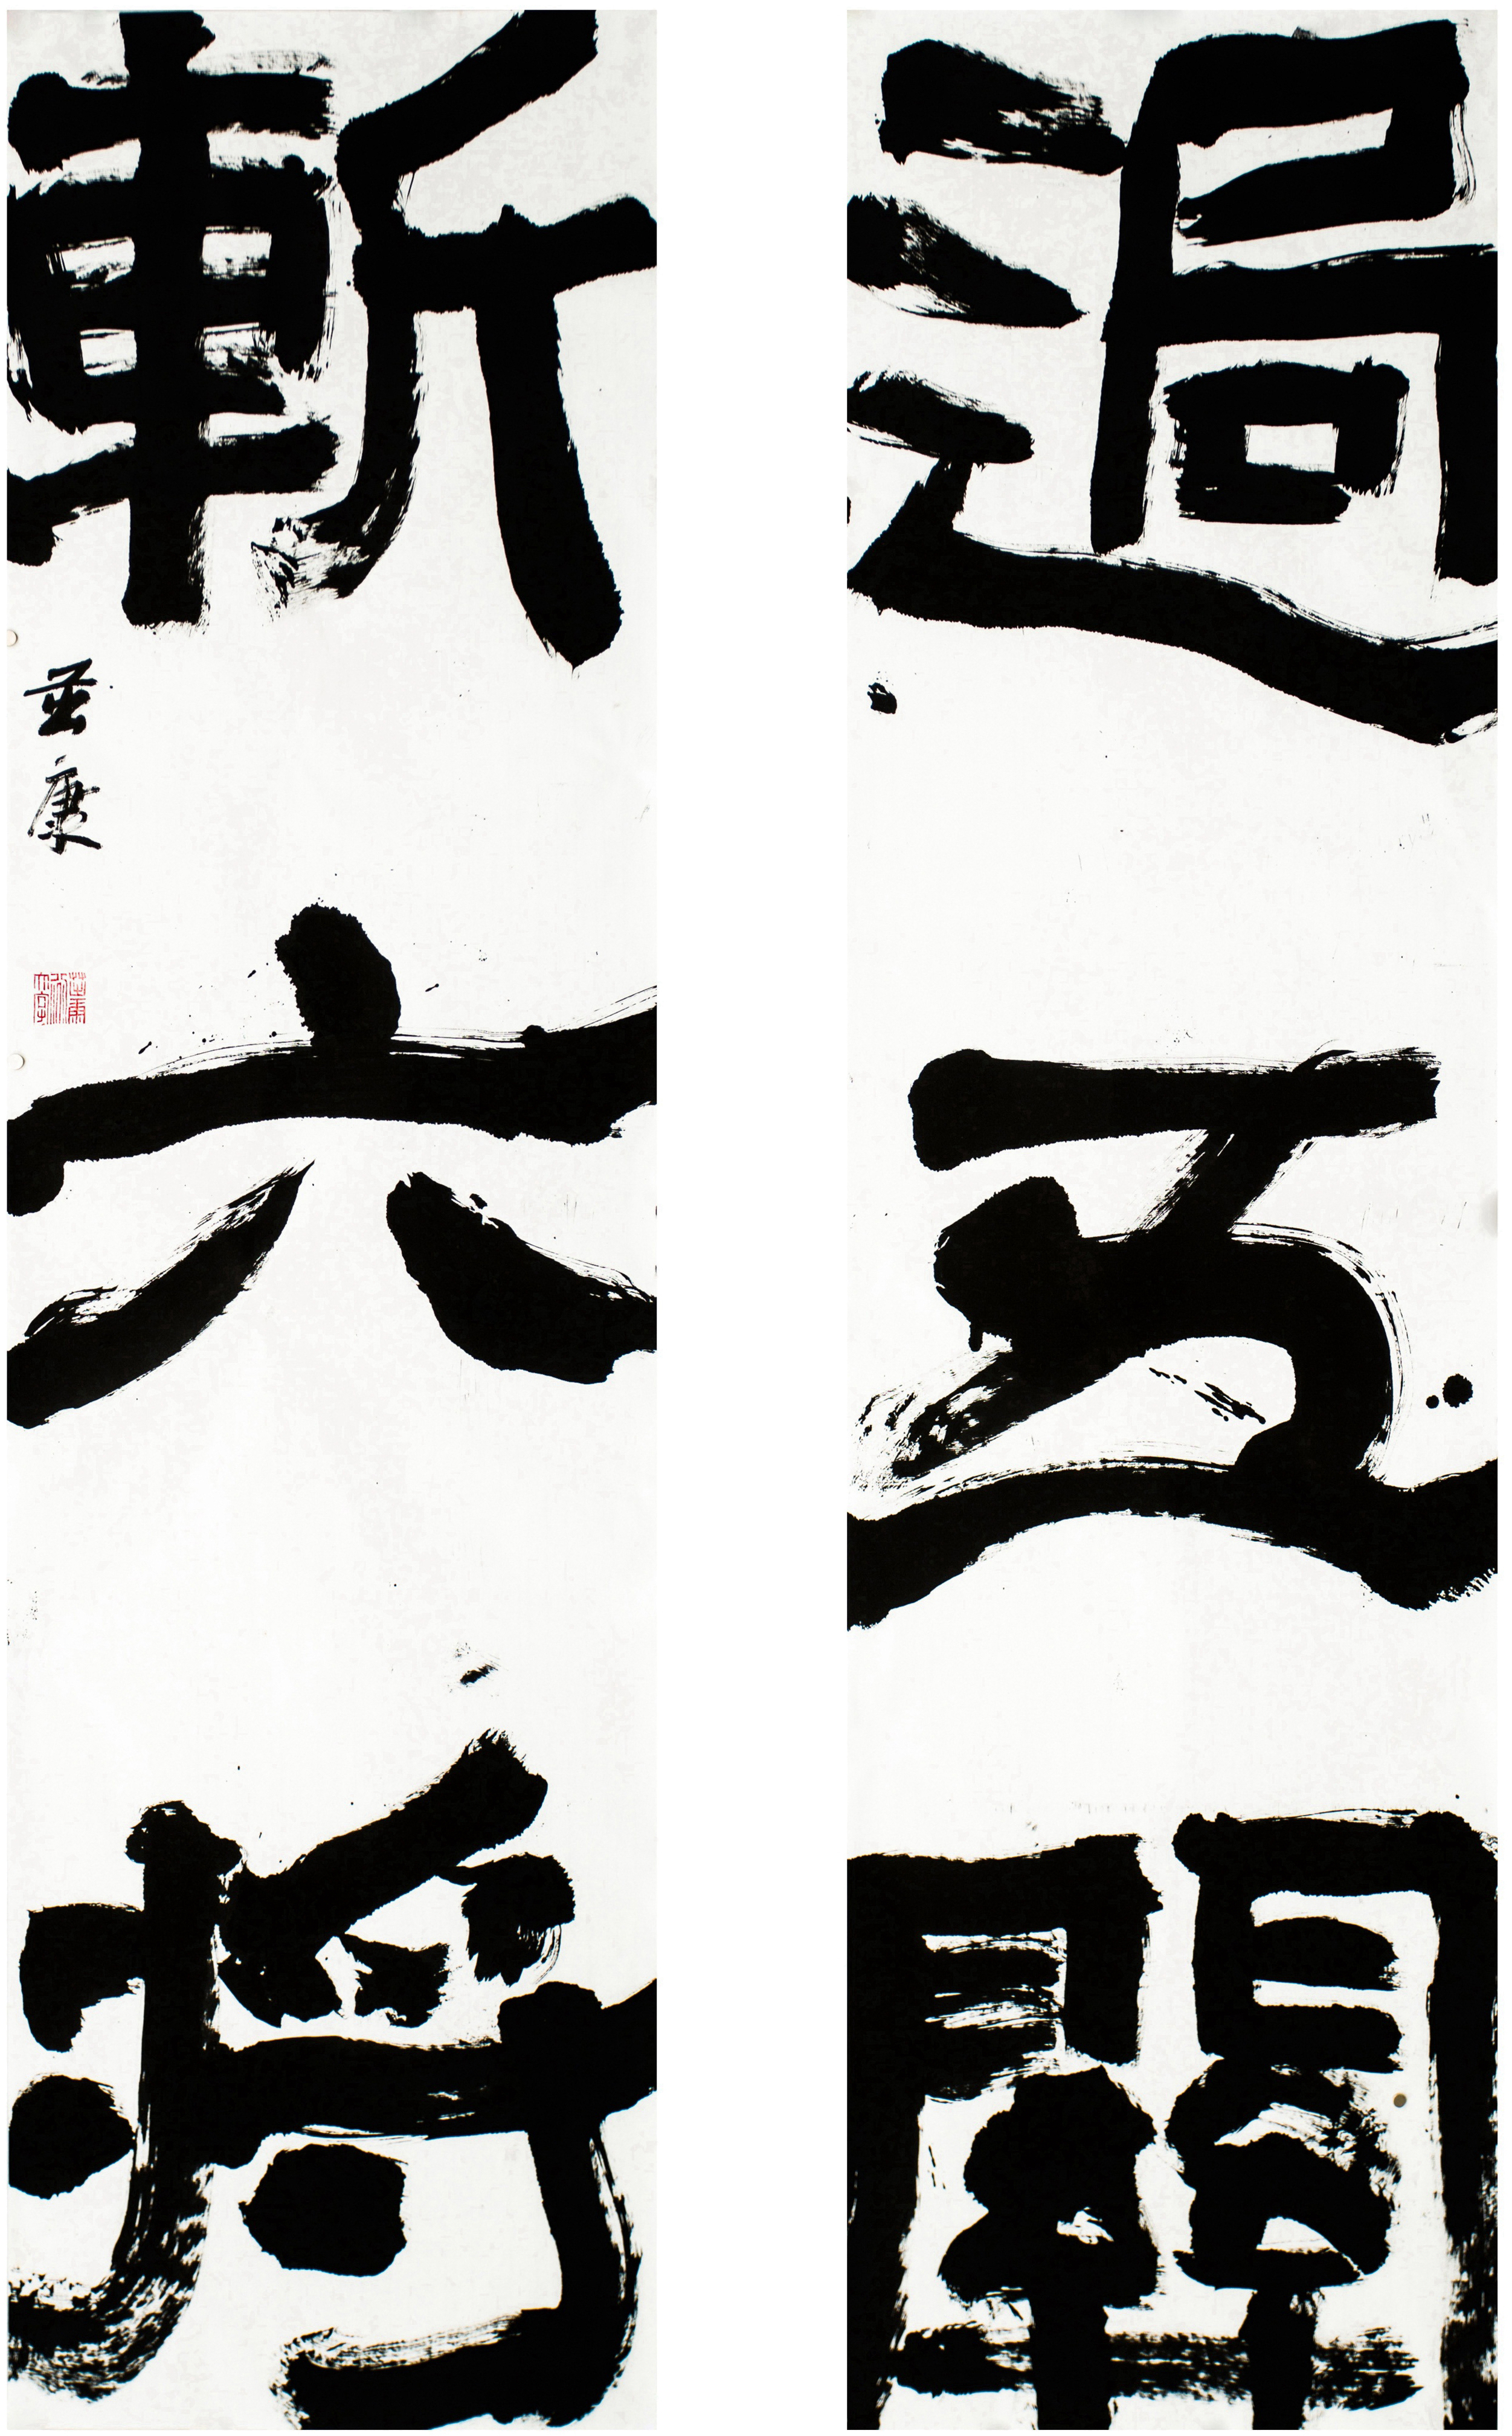 過五關
斬六將
芸康